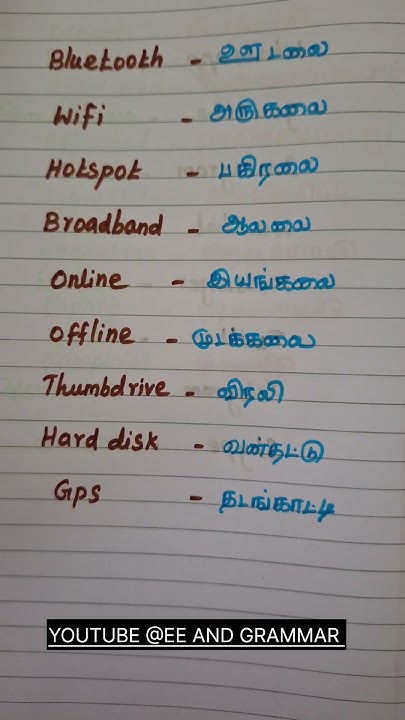 Bluetooth - ஊடலை
Wifi - அருகலை
Hotspot - பகிரலை
Broadband - ஆலலை
Online - இயங்கலை
Offline - முடக்கலை
Thumbdrive - விரலி
Hard disk - வன்தட்டு
Gps - தடங்காட்டி
YOUTUBE @EE AND GRAMMAR